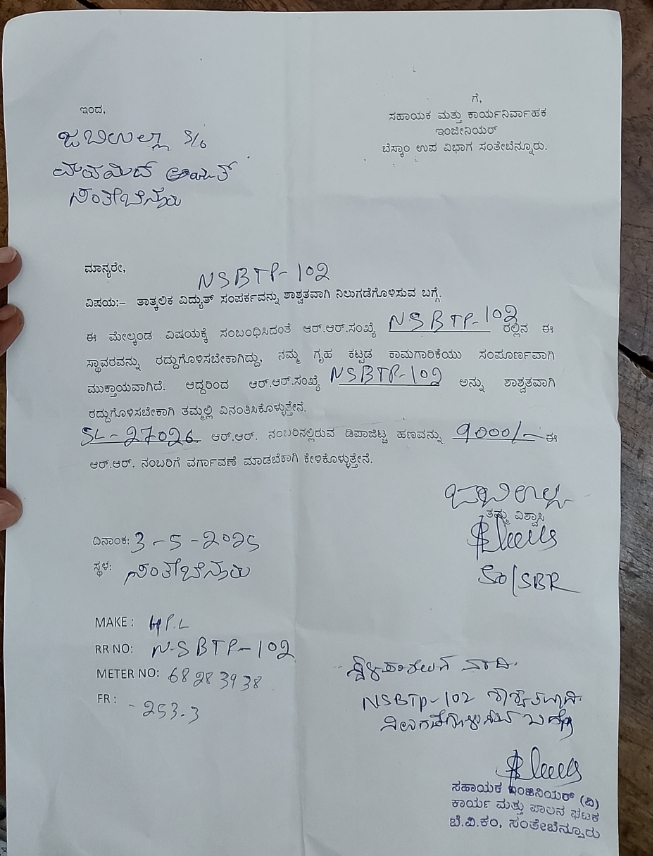 ಇಂದ,
ಜಬಿಉಲ್ಲಾ S/o
ಸಂತೇಬೆನ್ನೂರು
ಗೆ,
ಸಹಾಯಕ ಮತ್ತು ಕಾರ್ಯನಿರ್ವಾಹಕ
ಇಂಜೀನಿಯರ್
ಬೆಸ್ಕಾಂ ಉಪ ವಿಭಾಗ ಸಂತೇಬೆನ್ನೂರು.
ಮಾನ್ಯರೇ,
NSBTP-102
ವಿಷಯ:- ತಾತ್ಕಲಿಕ ವಿದ್ಯುತ್ ಸಂಪರ್ಕವನ್ನು ಶಾಶ್ವತವಾಗಿ ನಿಲುಗಡೆಗೊಳಿಸುವ ಬಗ್ಗೆ.
ಈ ಮೇಲ್ಕಂಡ ವಿಷಯಕ್ಕೆ ಸಂಬಂಧಿಸಿದಂತೆ ಆರ್.ಆರ್.ಸಂಖ್ಯೆ NSBTP-102 ರಲ್ಲಿನ ಈ
ಸ್ಥಾವರವನ್ನು ರದ್ದುಗೊಳಿಸಬೇಕಾಗಿದ್ದು, ನಮ್ಮ ಗೃಹ ಕಟ್ಟಡ ಕಾಮಗಾರಿಕೆಯು ಸಂಪೂರ್ಣವಾಗಿ
ಮುಕ್ತಾಯವಾಗಿದೆ. ಆದ್ದರಿಂದ ಆರ್.ಆರ್.ಸಂಖ್ಯೆ NSBTP-102 ಅನ್ನು ಶಾಶ್ವತವಾಗಿ
ರದ್ದುಗೊಳಿಸಬೇಕಾಗಿ ತಮ್ಮಲ್ಲಿ ವಿನಂತಿಸಿಕೊಳ್ಳುತ್ತೇನೆ.
SL-27026 ಆರ್.ಆರ್. ನಂಬರಿನಲ್ಲಿರುವ ಡಿಪಾಜಿಟ್ಟ ಹಣವನ್ನು 9000/- ಈ
ಆರ್.ಆರ್. ನಂಬರಿಗೆ ವರ್ಗಾವಣೆ ಮಾಡಬೇಕಾಗಿ ಕೇಳಿಕೊಳ್ಳುತ್ತೇನೆ.
ಜಬಿಉಲ್ಲಾ
ತಮ್ಮ ವಿಶ್ವಾಸಿ
ದಿನಾಂಕ: 3-5-2025
ಸ್ಥಳ: ಸಂತೇಬೆನ್ನೂರು
MAKE: HPL
RR NO: NSBTP-102
METER NO: 68283938
FR: -253.3
NSBTP-102 ಶಾಶ್ವತವಾಗಿ
ಸಹಾಯಕ ಇಂಜಿನಿಯರ್ (ವಿ)
ಕಾರ್ಯ ಮತ್ತು ಪಾಲನ ಘಟಕ
ಬೆ.ವಿ.ಕಂ, ಸಂತೇಬೆನ್ನೂರು